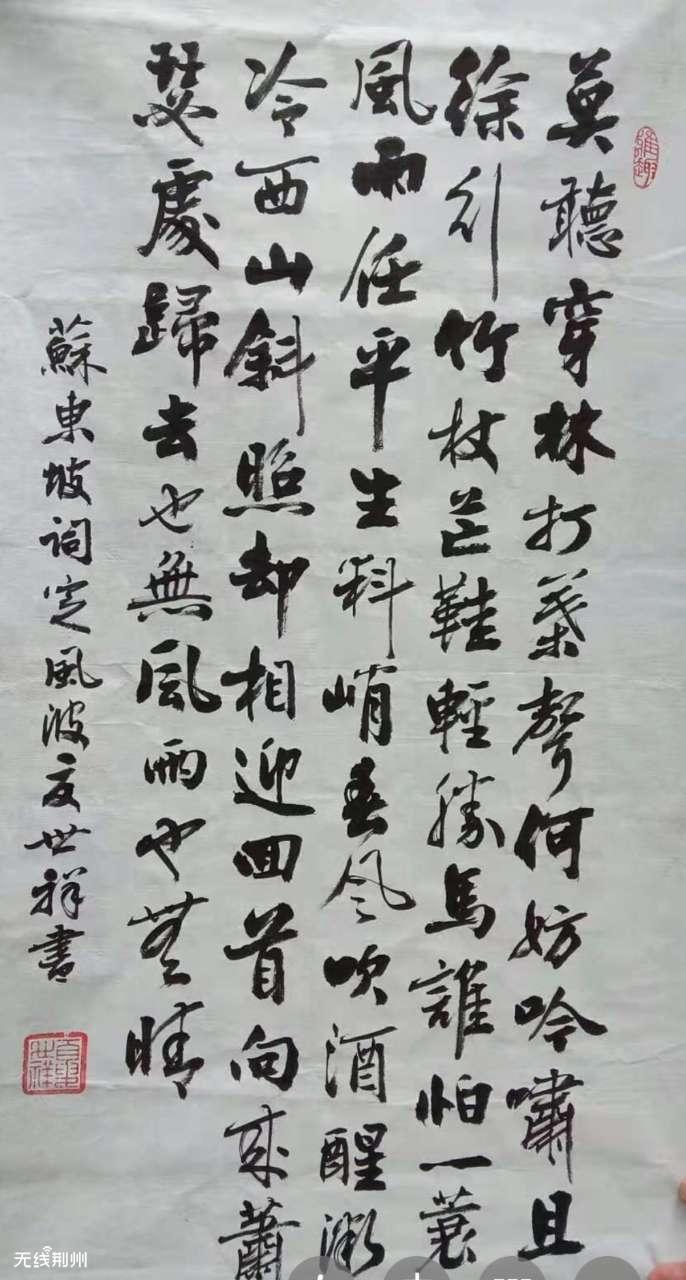 雅趣
莫聽穿林打葉聲何妨吟嘯且
徐行竹杖芒鞋輕勝馬誰怕一蓑
風雨任平生料峭春风吹酒醒微
冷西山斜照却相迎回首向來蕭
瑟處歸去也無風雨也無晴
蘇東坡詞定風波夏世祥書
无线荆州